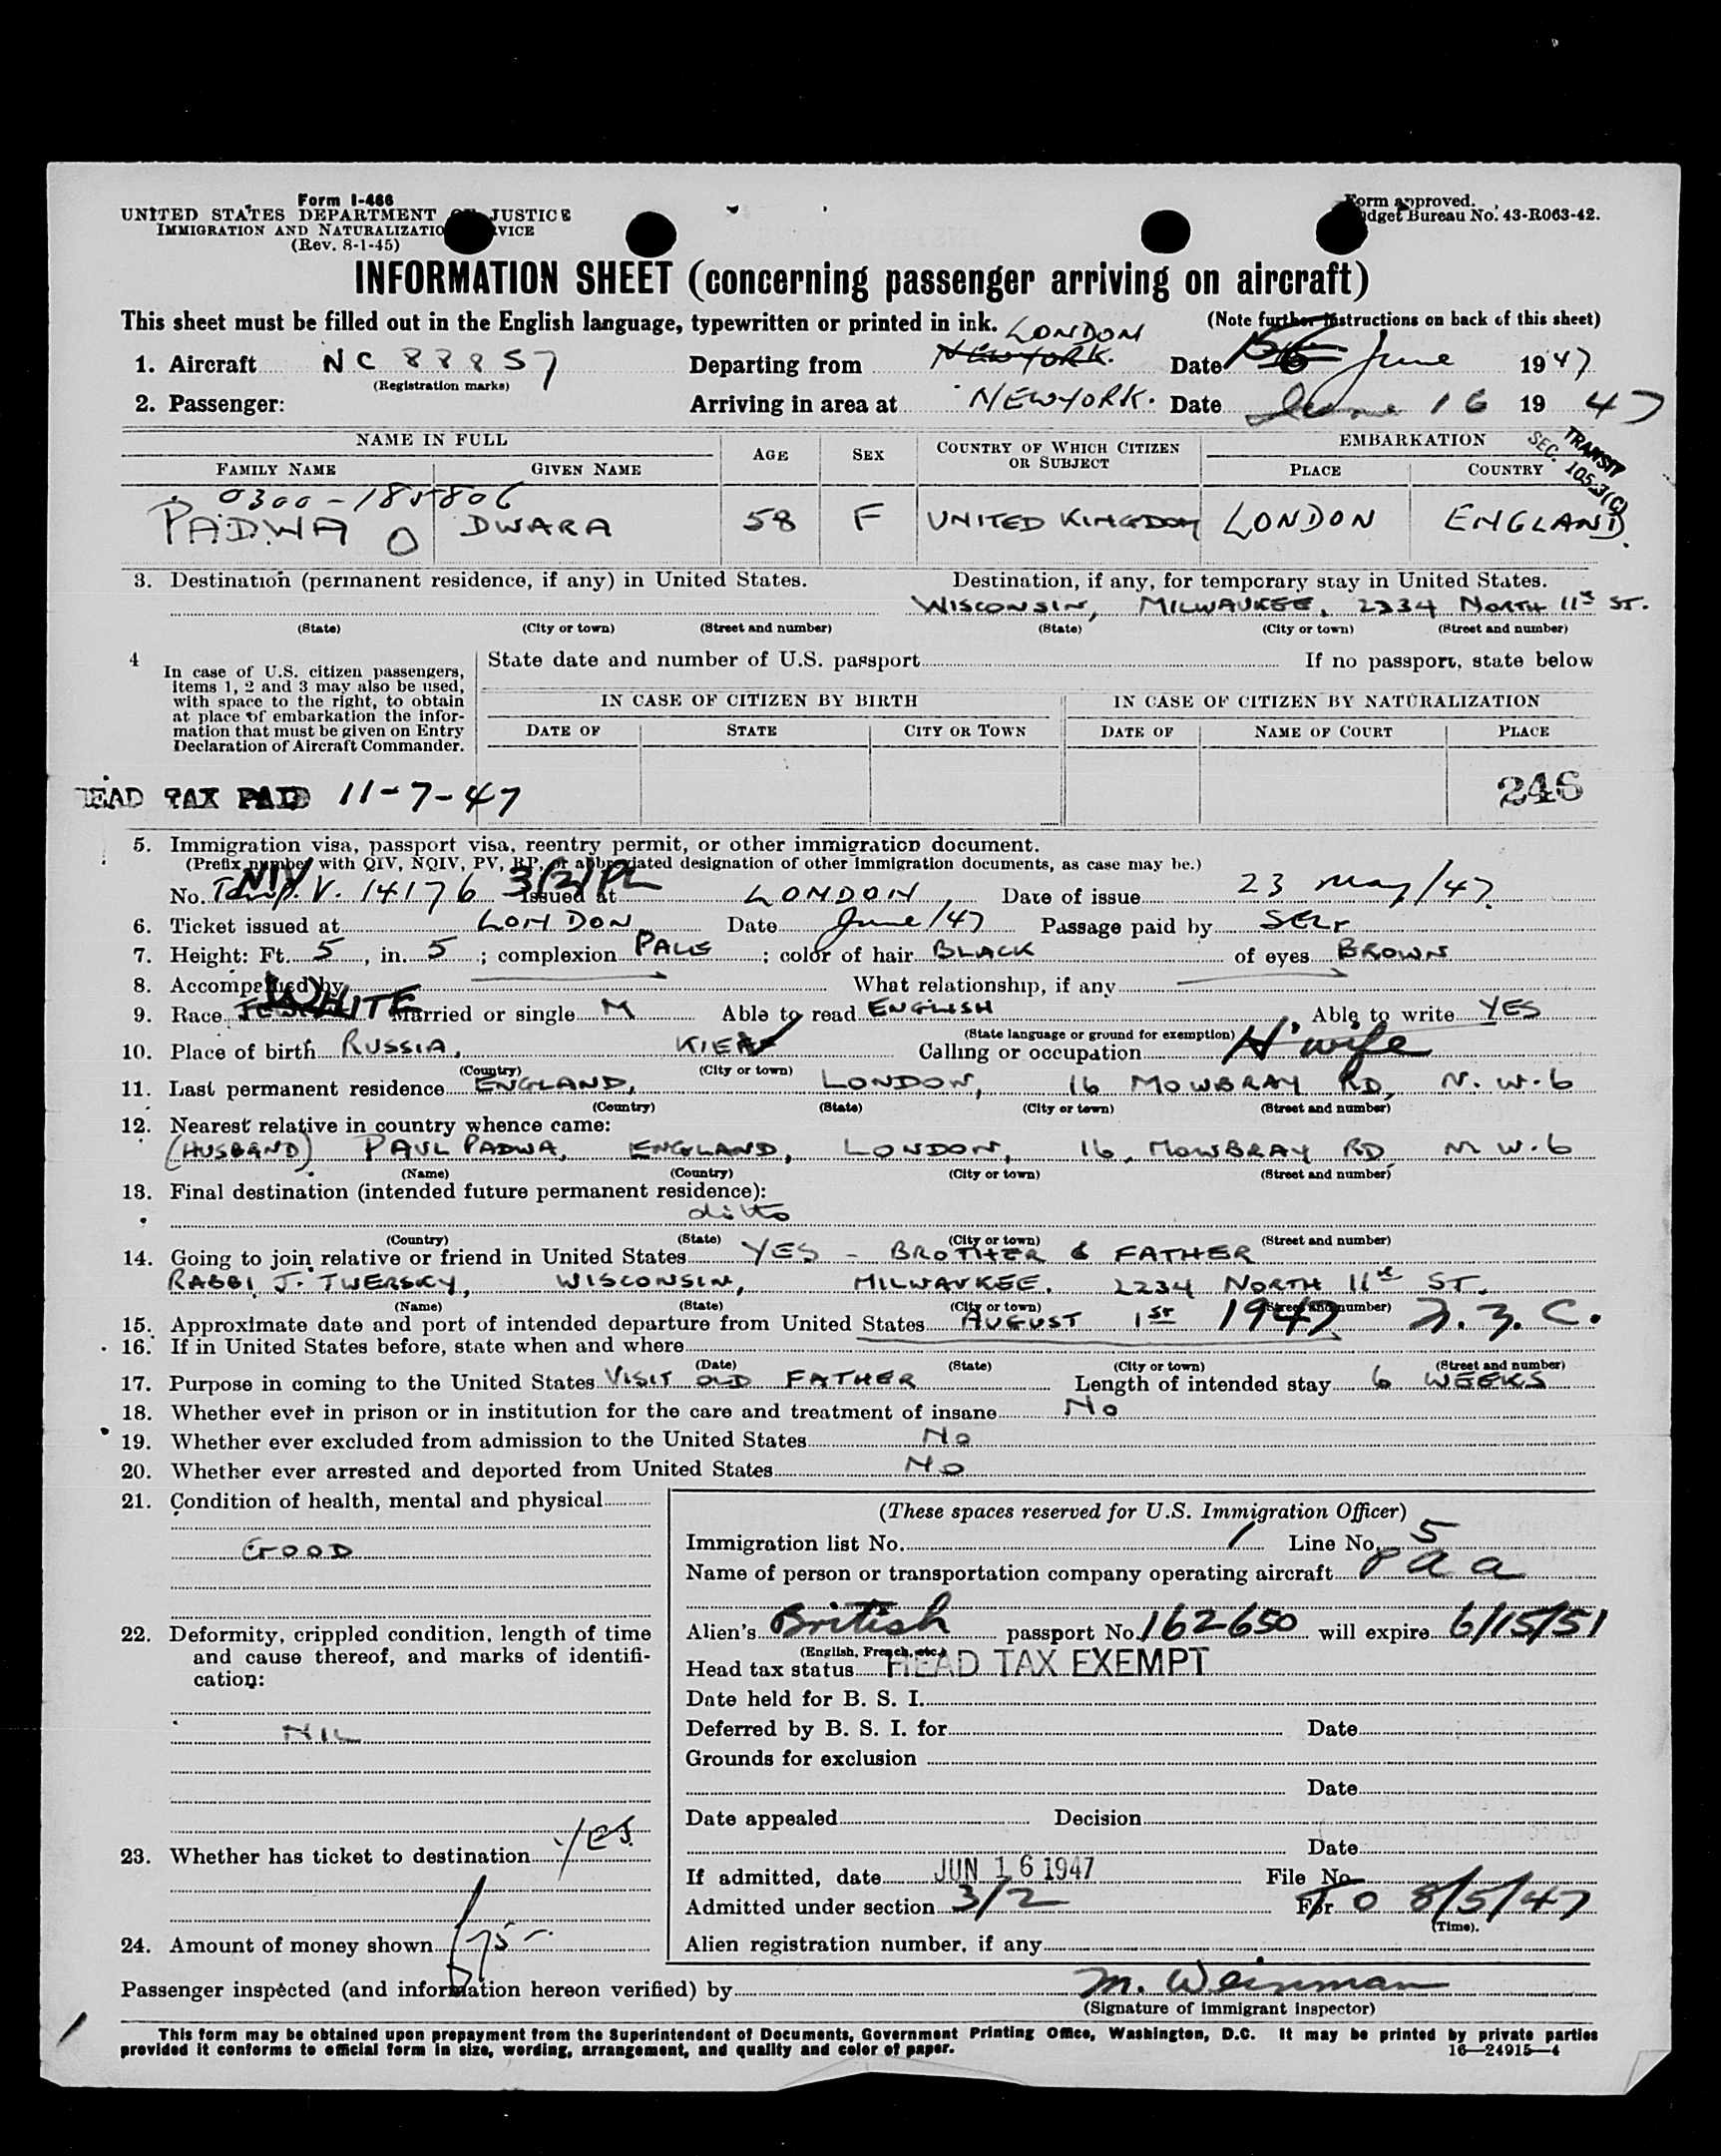 Form I-466
UNITED STATES DEPARTMENT OF JUSTICE
IMMIGRATION AND NATURALIZATION SERVICE
(Rev. 8-1-45)
Form approved.
Budget Bureau No. 43-R063-42.
INFORMATION SHEET (concerning passenger arriving on aircraft)
This sheet must be filled out in the English language, typewritten or printed in ink. (Note further instructions on back of this sheet)
LONDON
1. Aircraft NC 88857 Departing from NEW YORK. Date June 1947
(Registration marks)
2. Passenger: Arriving in area at NEW YORK. Date June 16 1947
NAME IN FULL AGE SEX COUNTRY OF WHICH CITIZEN OR SUBJECT EMBARKATION
FAMILY NAME GIVEN NAME PLACE COUNTRY
TRANSIT
SEC. 105.3(C)
0300-185806
PADWA O DWARA 58 F UNITED KINGDOM LONDON ENGLAND.
3. Destination (permanent residence, if any) in United States. Destination, if any, for temporary stay in United States.
WISCONSIN, MILWAUKEE, 2234 NORTH 11th ST.
(State) (City or town) (Street and number) (State) (City or town) (Street and number)
4 In case of U.S. citizen passengers, items 1, 2 and 3 may also be used, with space to the right, to obtain at place of embarkation the information that must be given on Entry Declaration of Aircraft Commander.
State date and number of U.S. passport If no passport, state below
IN CASE OF CITIZEN BY BIRTH IN CASE OF CITIZEN BY NATURALIZATION
DATE OF STATE CITY OR TOWN DATE OF NAME OF COURT PLACE
HEAD TAX PAID 11-7-47
246
5. Immigration visa, passport visa, reentry permit, or other immigration document.
(Prefix number with QIV, NQIV, PV, RP, or abbreviated designation of other immigration documents, as case may be.)
NIV 3/2/PL
No. Temp. V. 14176 Issued at LONDON, Date of issue 23 May/47.
6. Ticket issued at LONDON Date June/47 Passage paid by SELF
7. Height: Ft. 5, in. 5; complexion PALE; color of hair BLACK of eyes BROWN
8. Accompanied by What relationship, if any
9. Race WHITE Married or single M Able to read ENGLISH, Able to write YES
(State language or ground for exemption)
10. Place of birth RUSSIA, KIEV Calling or occupation H'wife
(Country) (City or town)
11. Last permanent residence ENGLAND, LONDON, 16 MOWBRAY RD, N.W.6
(Country) (State) (City or town) (Street and number)
12. Nearest relative in country whence came:
(HUSBAND) PAUL PADWA, ENGLAND, LONDON, 16, MOWBRAY RD, N W.6
(Name) (Country) (City or town) (Street and number)
13. Final destination (intended future permanent residence):
ditto
(Country) (State) (City or town) (Street and number)
14. Going to join relative or friend in United States YES - BROTHER & FATHER
RABBI J. TWERSKY, WISCONSIN, MILWAUKEE. 2234 NORTH 11th ST.
(Name) (State) (City or town) (Street and number)
15. Approximate date and port of intended departure from United States AUGUST 1st 1947
16. If in United States before, state when and where
(Date) (State) (City or town) (Street and number)
17. Purpose in coming to the United States VISIT OLD FATHER Length of intended stay 6 WEEKS
18. Whether ever in prison or in institution for the care and treatment of insane No
19. Whether ever excluded from admission to the United States No
20. Whether ever arrested and deported from United States No
21. Condition of health, mental and physical
GOOD
22. Deformity, crippled condition, length of time and cause thereof, and marks of identification:
NIL
23. Whether has ticket to destination YES.
24. Amount of money shown 75-
(These spaces reserved for U.S. Immigration Officer)
Immigration list No. 1 Line No. 5
Name of person or transportation company operating aircraft P a a
Alien's British passport No. 162650 will expire 6/15/51
(English, French, etc.)
Head tax status HEAD TAX EXEMPT
Date held for B. S. I.
Deferred by B. S. I. for Date
Grounds for exclusion
Date
Date appealed Decision
Date
If admitted, date JUN 16 1947 File No.
Admitted under section 3/2 For TO 8/5/47
(Time).
Alien registration number, if any
Passenger inspected (and information hereon verified) by M. Weinman
(Signature of immigrant inspector)
This form may be obtained upon prepayment from the Superintendent of Documents, Government Printing Office, Washington, D.C. It may be printed by private parties
provided it conforms to official form in size, wording, arrangement, and quality and color of paper. 16—24915-4